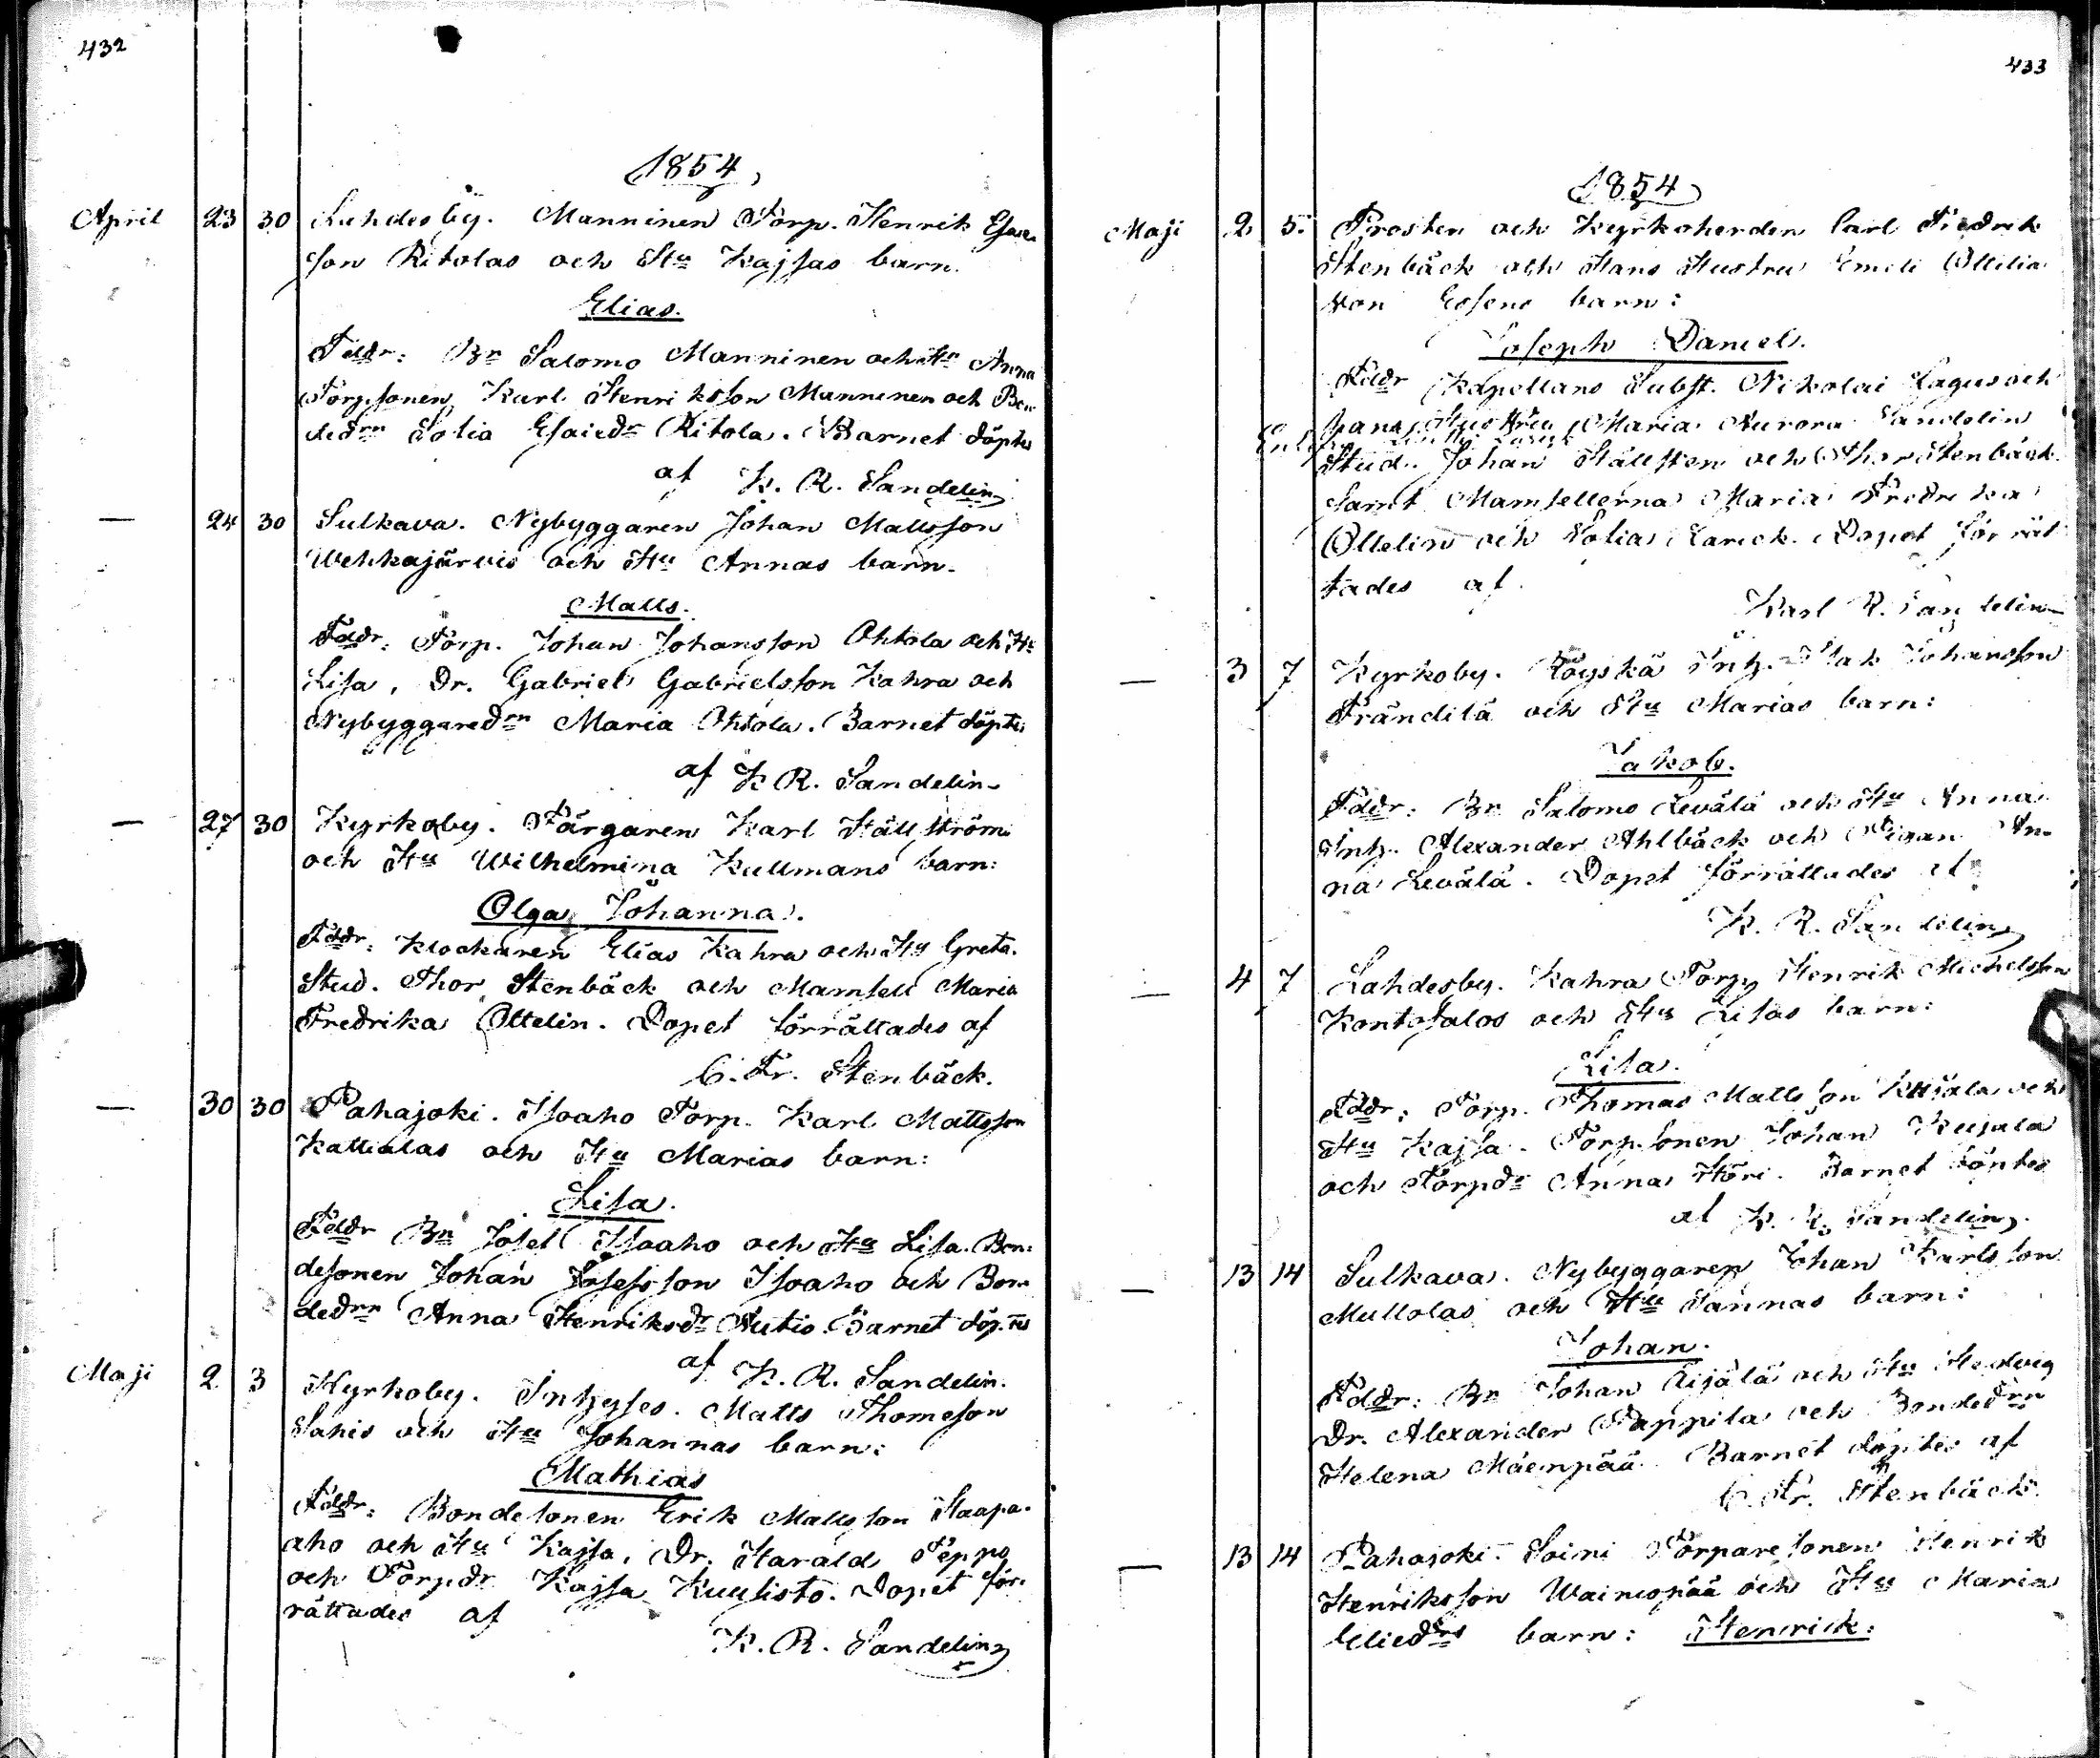 432
1854,
April 23 30 Luhdesby. Manninen Torp. Henrik Esaie-
son Ritolas och Hu Kajsas barn.
Elias.
Fddr: Bn Salomo Manninen och Hu Anna
Torpsonen Karl Henriksson Manninen och Bon-
dedrn Sofia Esaiedr Ritola. Barnet döptes
af K. R. Sandelin
— 24 30 Sulkava. Nybyggaren Johan Mattsson
Wehkajärvis och Hu Annas barn.
Matts.
Fddr: Torp. Johan Johansson Ohtola och Hu
Lisa, Dr. Gabriel Gabrielsson Kahra och
Nybyggaredrn Maria Ohtola. Barnet döptes
af K R. Sandelin
— 27 30 Kyrkoby. Färgaren Karl Hällström
och Hu Wilhelmina Kullmans barn:
Olga Johanna.
Fddr: Klockaren Elias Kahra och Hu Greta.
Stud. Thor Stenbäck och Mamsell Maria
Fredrika Ottelin. Dopet förrättades af
C. Fr. Stenbäck.
— 30 30 Pahajoki. Isoaho Torp. Karl Mattsson
Kattialas och Hu Marias barn:
Lisa.
Fddr Bn Josef Isoaho och Hu Lisa. Bon-
desonen Johan Josefsson Isoaho och Bon-
dedrn Anna Henriksdr Autio. Barnet döptes
af K. R. Sandelin.
Maji 2 3 Kyrkoby. Inhyses. Matts Thomeson
Sahis och Hu Johannas barn:
Mathias
Fddr: Bondesonen Erik Mattsson Haapa-
aho och Hu Kajsa, Dr. Harald Seppo
och Torpdr Kajsa Kuulisto. Dopet för-
rättades af
K. R. Sandelin
433
1854
Maji 2 5. Prosten och Kyrkoherden Carl Fredrik
Stenbäck och Hans Hustru Emeli Ottilia
von Essens barn:
Joseph Daniel.
Fddr Kapellans Subst. Nikolai Lagus och
hans Hustru Maria Aurora Sandelin
Stud. Johan Hällsten och Thor Stenbäck
samt Mamsellerna Maria Fredrika
Ottelin och Sofia Karick. Dopet förrät
tades af
Karl R. Sandelin
— 3 7 Kyrkoby. Röyskä Inh. Isak Johansson
Frändilä och Hu Marias barn:
Jakob.
Fddr: Bn Salomo Levälä och Hu Anna
Inh. Alexander Ahlbäck och Pigan An-
na Levälä. Dopet förrättades af
K. R. Sandelin
— 4 7 Lahdesby. Kahra Torp Henrik Michelsson
Kontosalos och Hu Lisas barn:
Lisa.
Fddr: Torp. Thomas Mattsson Kujala och
Hu Kajsa. Torpsonen Johan Kujala
och Torpdr Anna Höri. Barnet döptes
af K. R. Sandelin
— 13 14 Sulkava. Nybyggaren Johan Karlsson
Mullolas och Hu Sannas barn:
Johan.
Fddr: Bn Johan Äijälä och Hu Hedvig
Dr. Alexander Pappila och Bondedrn
Helena Mäenpää. Barnet döptes af
C. Fr. Stenbäck.
— 13 14 Pahajoki. Soini Torparesonen Henrik
Henriksson Wainionpää och Hu Maria
Eliedrs barn: Henrick: